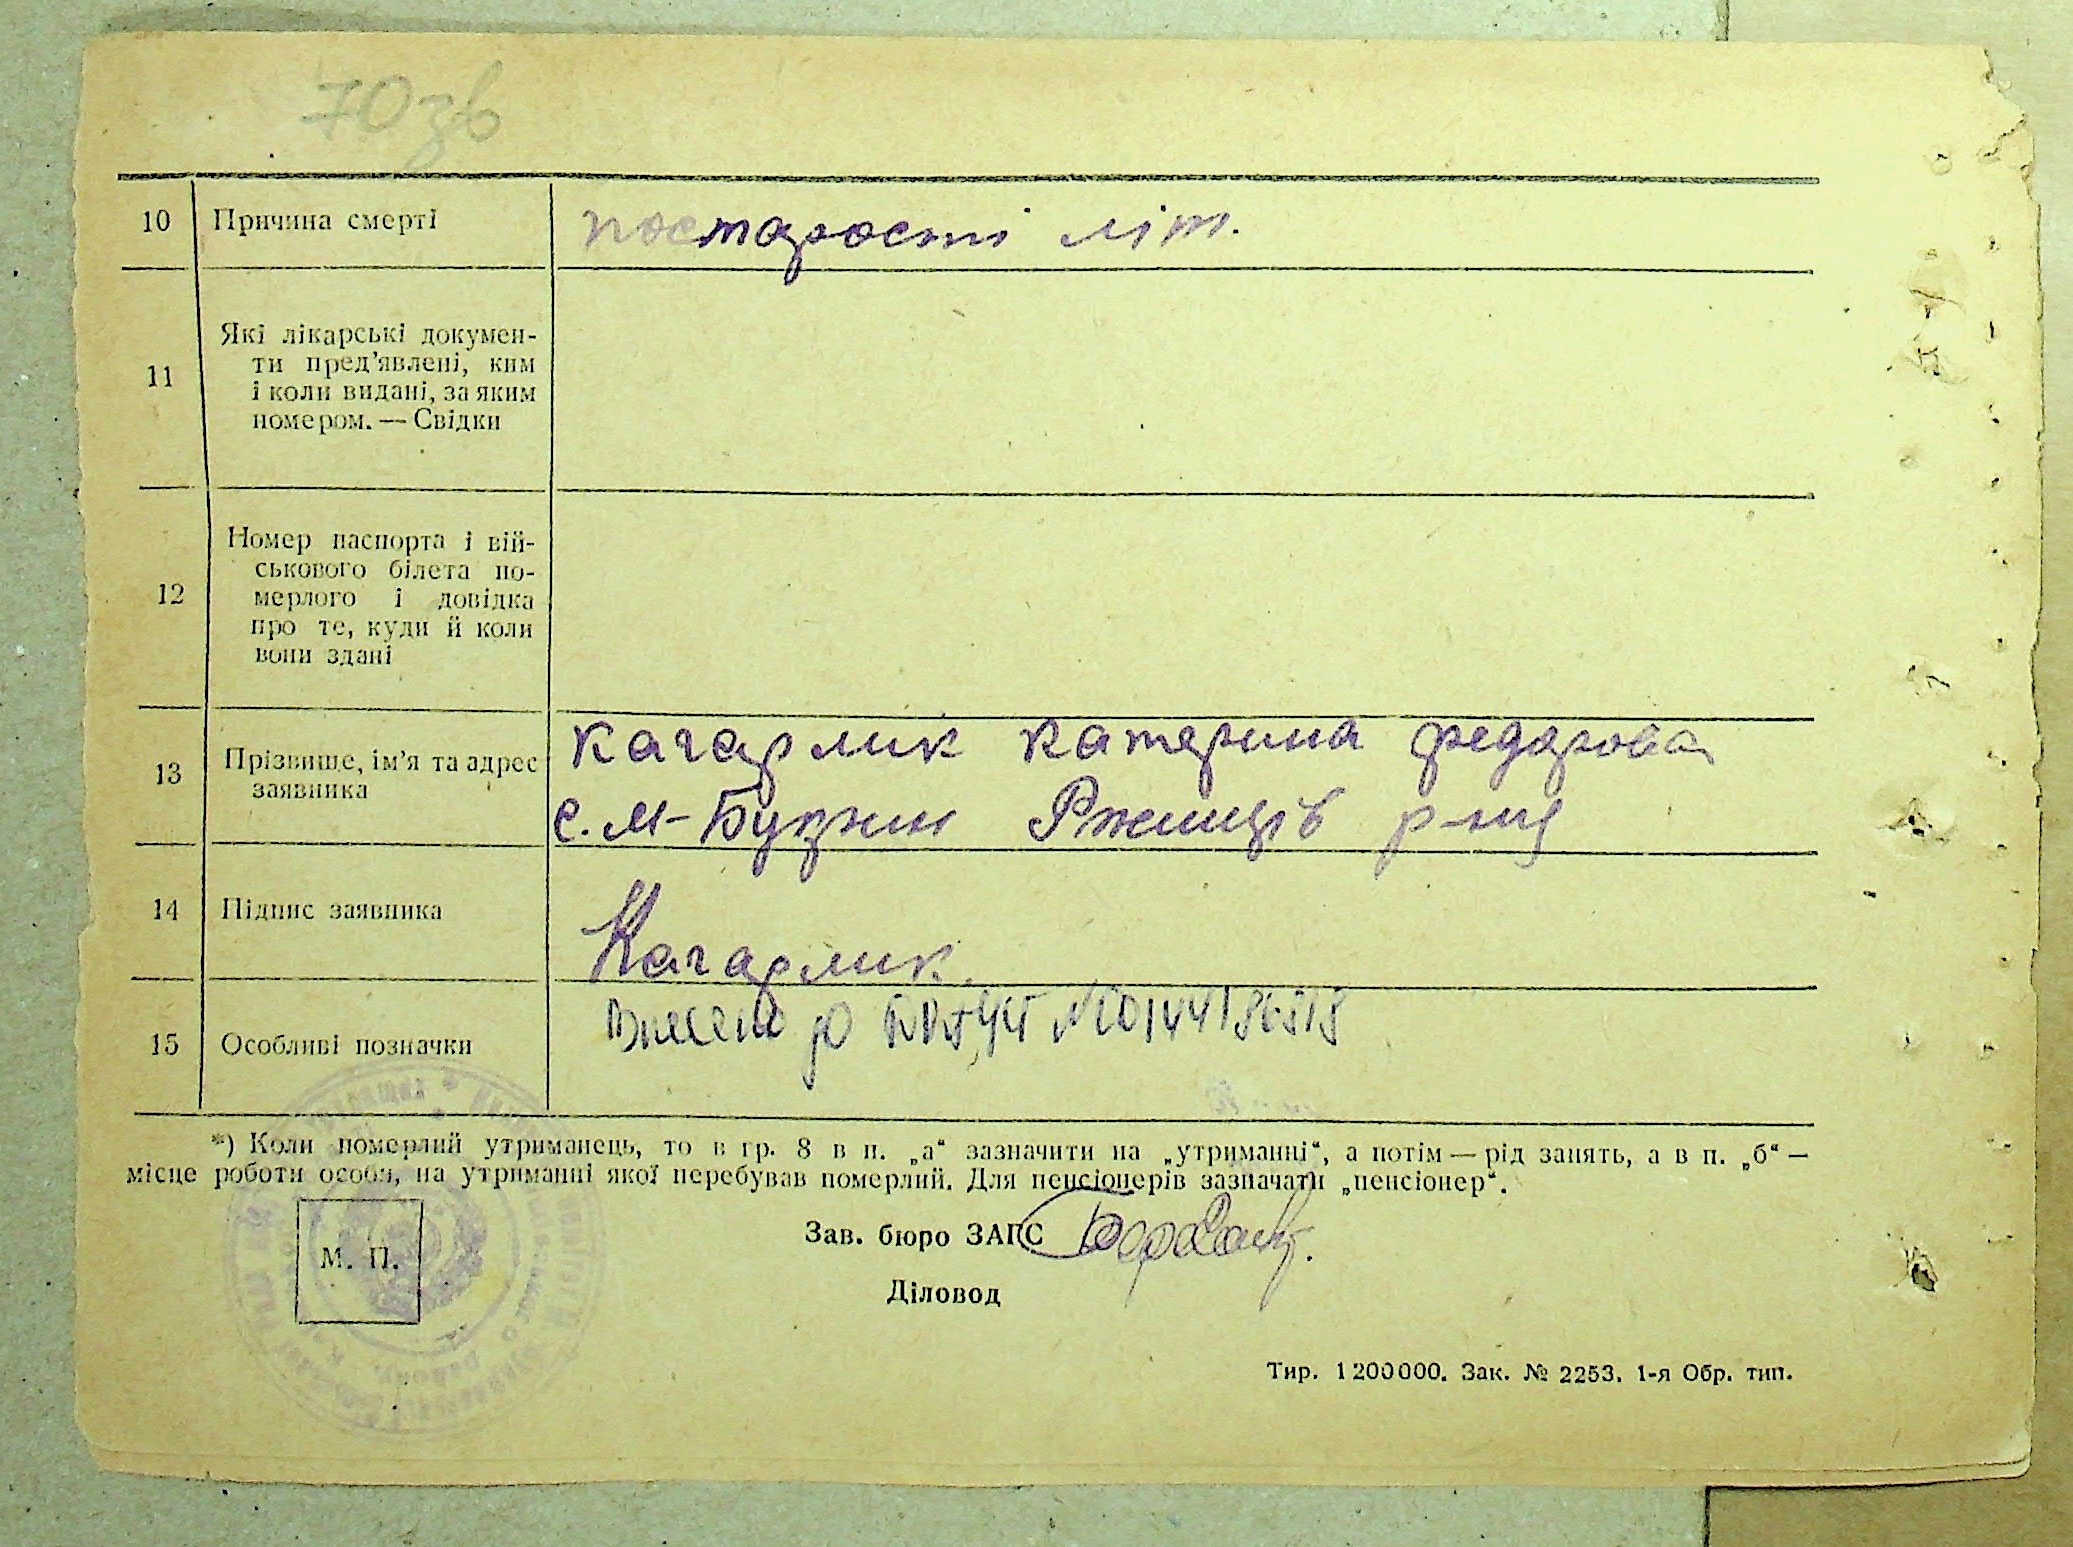 70зв
10 Причина смерті постарості літ.
11 Які лікарські докумен-
ти пред’явлені, ким
і коли видані, за яким
номером. — Свідки
12 Номер паспорта і вій-
ськового білета по-
мерлого і довідка
про те, куди й коли
вони здані
13 Прізвище, ім’я та адрес
заявника
Кагарлик Катерина Федорова
с. М-Бузуки р-ну
14 Підпис заявника Кагарлик
15 Особливі позначки Внесено до №
*) Коли померлий утриманець, то в гр. 8 в п. „а“ зазначити на „утриманні“, а потім — рід занять, а в п. „б“ —
місце роботи особи, на утриманні якої перебував померлий. Для пенсіонерів зазначати „пенсіонер“.
М. П.
Зав. бюро ЗАГС
Діловод
Тир. 1200000. Зак. № 2253. 1-я Обр. тип.